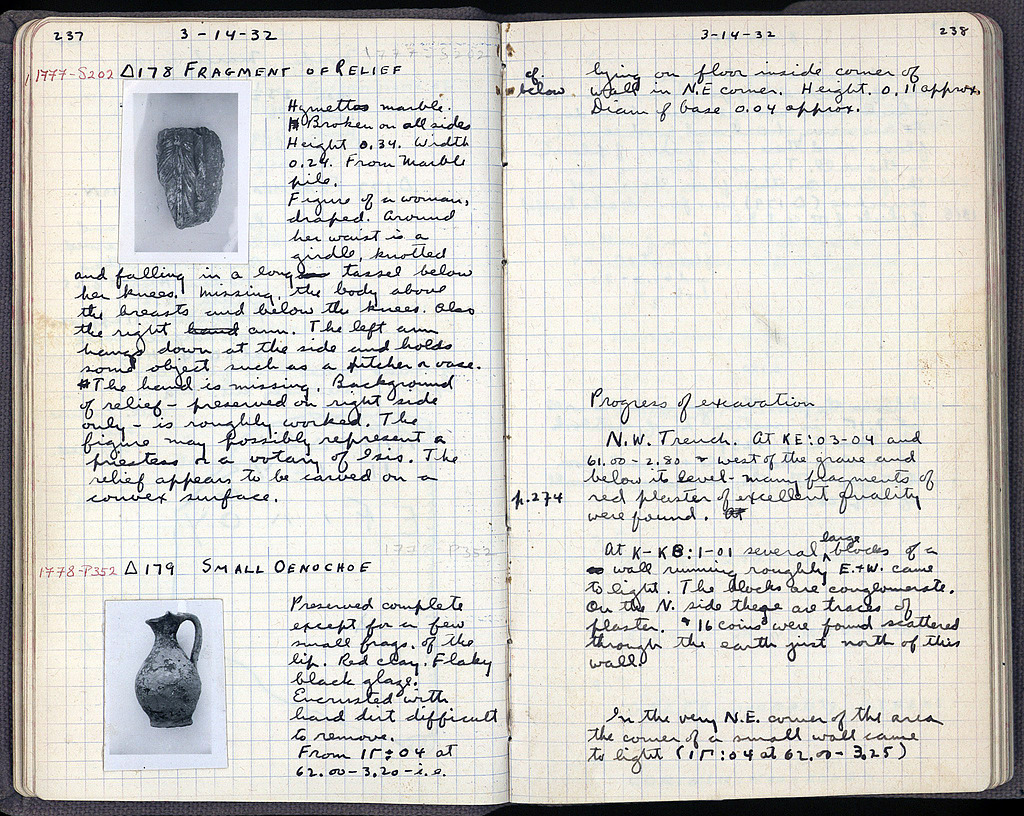 237
3-14-32
1777-S202 Δ178 FRAGMENT OF RELIEF
Hymettos marble.
Broken on all sides
Height 0.34. Width
0.24. From Marble
pile.
Figure of a woman,
draped. Around
her waist is a
girdle, knotted
and falling in a long tassel below
her knees. Missing, the body above
the breasts and below the knees. Also
the right hand arm. The left arm
hangs down at the side and holds
some object such as a pitcher or vase.
The hand is missing. Background
of relief - preserved on right side
only - is roughly worked. The
figure may possibly represent a
priestess or a votary of Isis. The
relief appears to be carved on a
convex surface.
1778 P352
1778-P352 Δ179 SMALL OENOCHOE
Preserved complete
except for a few
small frags. of the
lip. Red clay. Flaky
black glaze.
Encrusted with
hard dirt difficult
to remove.
From ΙΓ:04 at
62.00-3.20-i.e.
3-14-32
238
cf. below
lying on floor inside corner of
wall in N.E corner. Height. 0.11 approx.
Diam of base 0.04 approx.
Progress of excavation
N.W. Trench. At KE:03-04 and
61.00-2.80 west of the grave and
below its level - many fragments of
p.274
red plaster of excellent quality
were found. At
At K-KB:1-01 several large blocks of a
wall running roughly E.+W. came
to light. The blocks are conglomerate.
On the N. side there are traces of
plaster. 16 coins were found scattered
through the earth just north of this
wall.
In the very N.E. corner of the area
the corner of a small wall came
to light (ΙΓ:04 at 62.00-3.25)